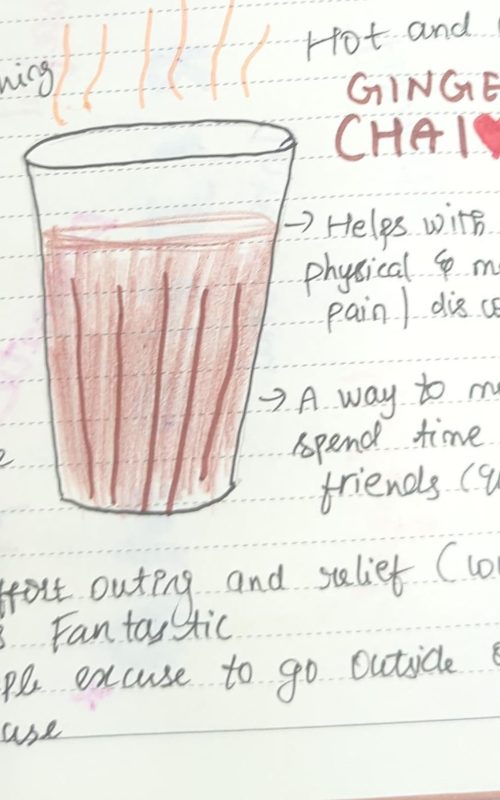 Hot and
GINGE
CHAI
ning
→ Helps with
physical & m
pain | dis co
→ A way to m
spend time
friends (
outing and relief (
Fantastic
ple excuse to go outside
use